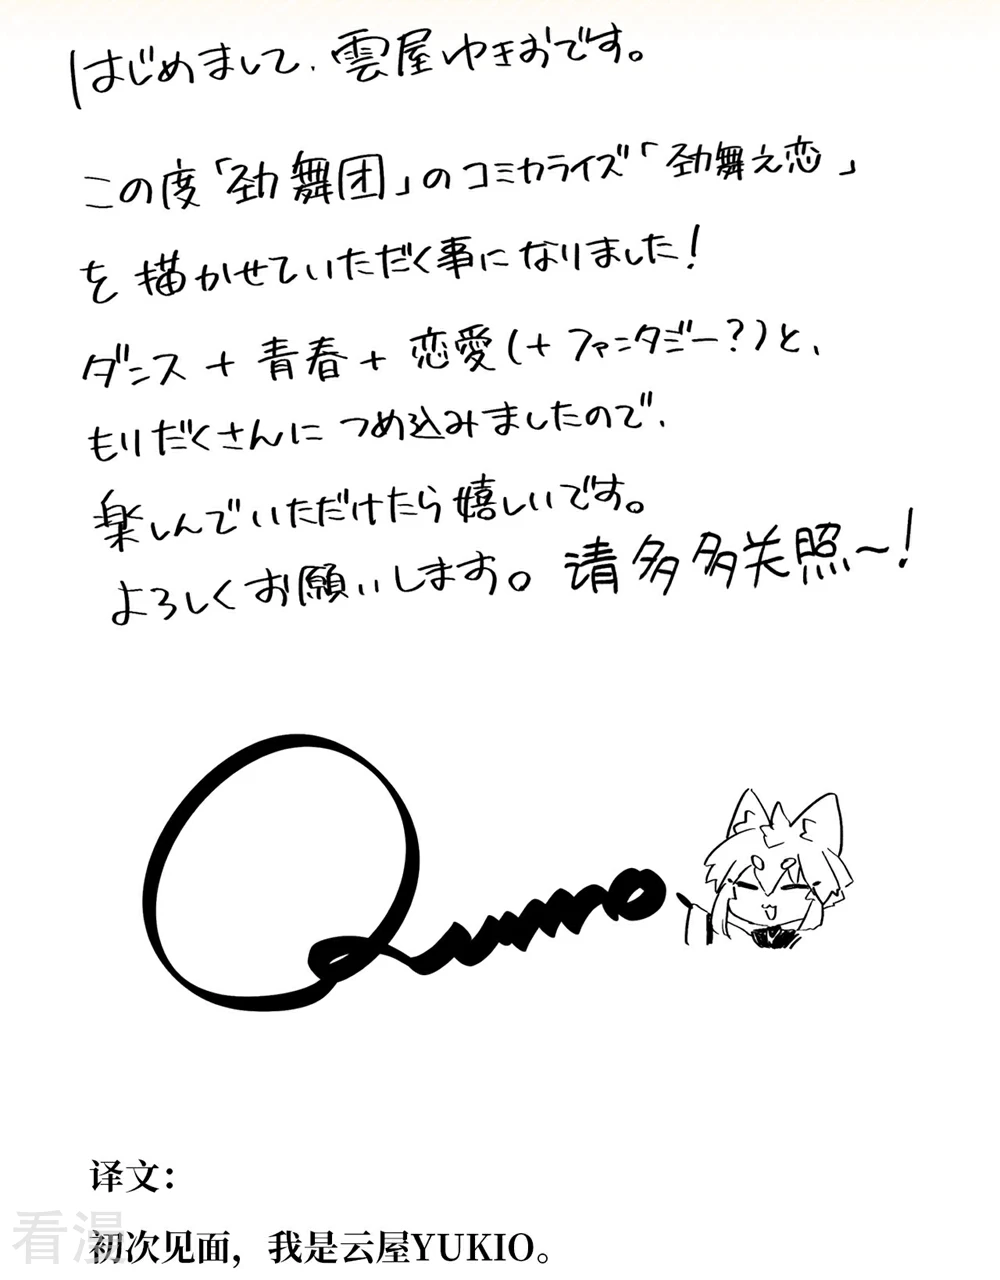 はじめまして、雲屋ゆきおです。
この度「劲舞团」のコミカライズ「劲舞之恋」
を描かせていただく事になりました！
ダンス+青春+恋愛(+ファンタジー？)と、
もりだくさんにつめ込みましたので、
楽しんでいただけたら嬉しいです。
よろしくお願いします。请多多关照~！
译文：
初次见面，我是云屋YUKIO。
看漫